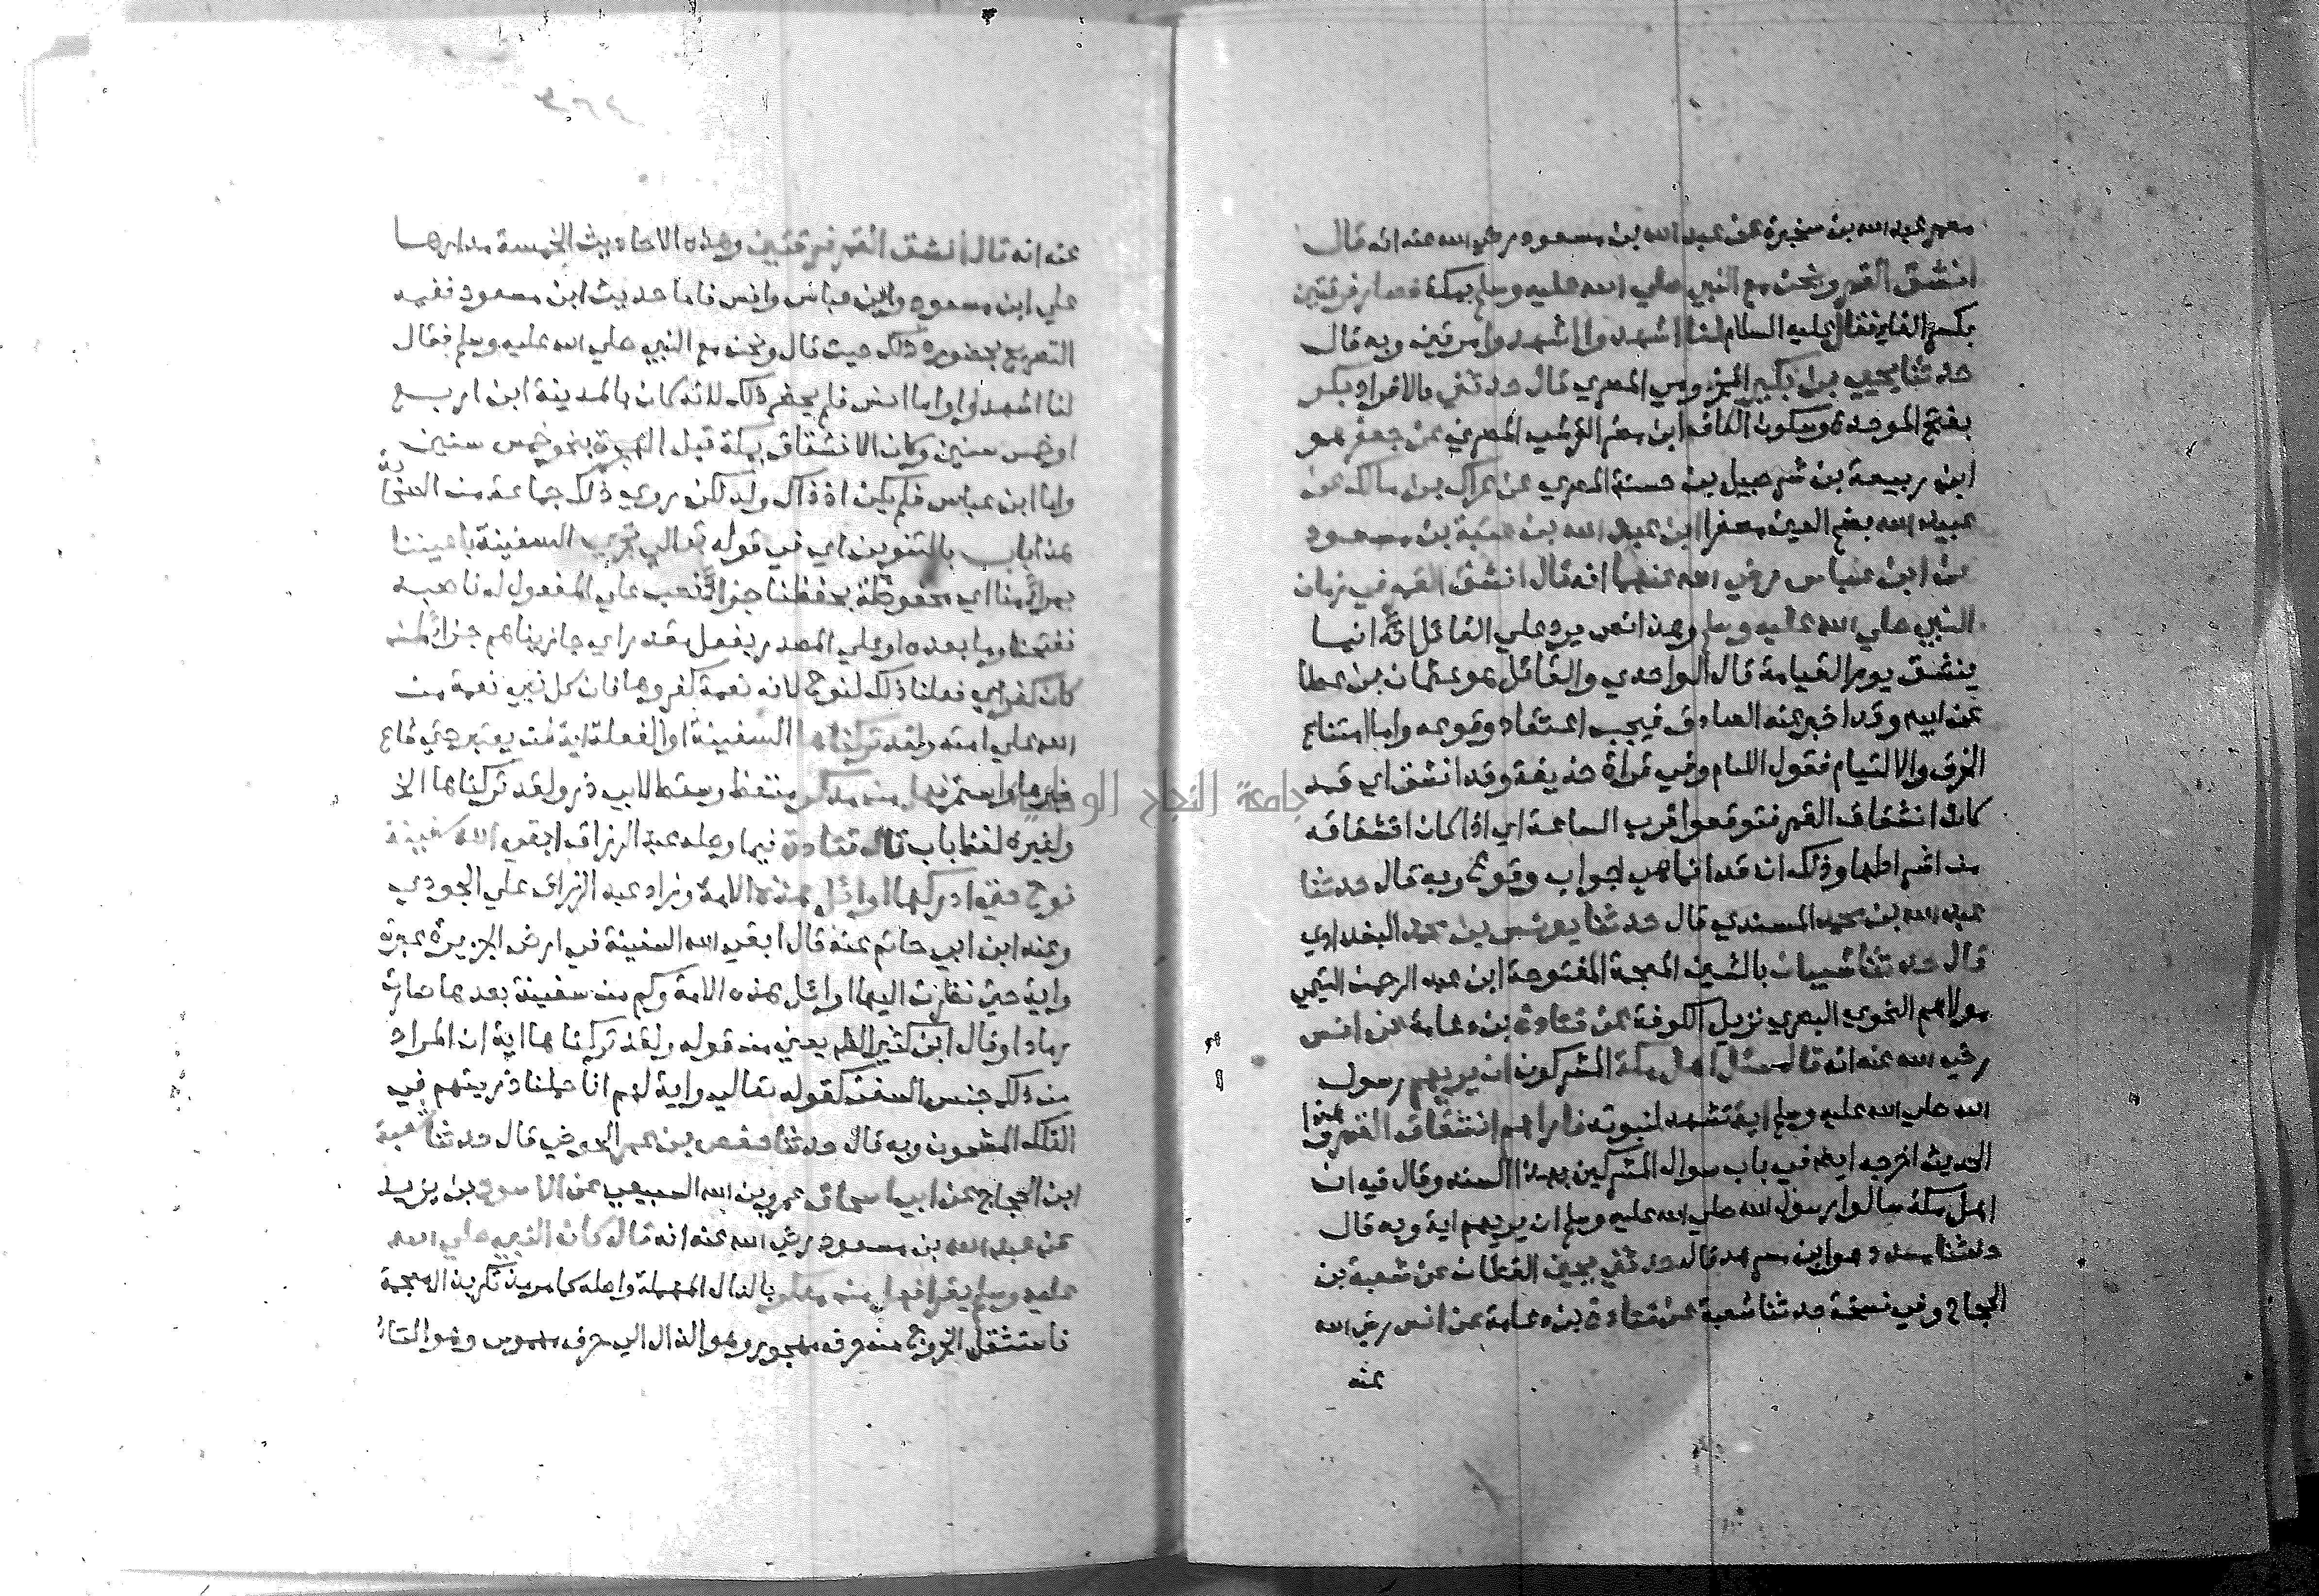 معمر عبد الله بن سخبرة عن عبد الله بن مسعود رضي الله عنه انه قال
انشق القمر ونحن مع النبي صلي الله عليه وسلم بمكة فصار فرقتين
بكسر الفاء فقال عليه السلام لنا اشهدوا اشهدوا مرتين وبه قال
حدثنا يحيي بن بكير المخزومي المصري قال حدثني بالافراد بكر
بفتح الموحدة وسكون الكاف ابن مضر القرشي المصري عن جعفر هو
ابن ربيعة بن شرحبيل بن حسنة المصري عن عراك بن مالك عن
عبيد الله بضم العين مصغرا ابن عبد الله بن عتبة بن مسعود
عن ابن عباس رضي الله عنهما انه قال انشق القمر في زمان
النبي صلي الله عليه وسلم وهذا نص يرد علي القائل انه انما
ينشق يوم القيامة قال الواحدي والقائل هو عثمان بن عطا
عن ابيه وقد اخبر عنه الصادق فيجب اعتقاد وقوعه واما امتناع
الخرق والالتيام فقول اللئام وفي قراة حذيفة وقد انشق اي قد
كان انشقاق القمر فتوقعوا قرب الساعة اي اذا كان انشقاقه
من اشراطها وذلك ان قد انما هي جواب وقوع وبه قال حدثنا
عبد الله بن محمد المسندي قال حدثنا يونس بن محمد البغدادي
قال حدثنا شيبان بالشين المعجمة المفتوحة ابن عبد الرحمن التيمي
مولاهم النحوي البصري نزيل الكوفة عن قتادة بن دعامة عن انس
رضي الله عنه انه قال سئل اهل مكة المشركون ان يريهم رسول
الله صلي الله عليه وسلم اية تشهد لنبوته فاراهم انشقاق القمر وهذا
الحديث اخرجه ايضا في باب سوال المشركين بهذا السند وقال فيه ان
اهل مكة سالوا رسول الله صلي الله عليه وسلم ان يريهم اية وبه قال
حدثنا مسدد هو ابن مسرهد قال حدثني يحيي القطان عن شعبة بن
الحجاج وفي نسخة حدثنا شعبة عن قتادة بن دعامة عن انس رضي الله
عنه
عنه انه قال انشق القمر فرقتين وهذه الاحاديث الخمسة مدارها
علي ابن مسعود وابن عباس وانس فاما حديث ابن مسعود ففيه
التصريح بحضوره ذلك حيث قال ونحن مع النبي صلي الله عليه وسلم فقال
لنا اشهدوا واما انس فلم يحضر ذلك لانه كان بالمدينة ابن اربع
او خمس سنين وكان الانشقاق بمكة قبل الهجرة بنحو خمس سنين
واما ابن عباس فلم يكن اذ ذاك ولد لكن روي ذلك جماعة من الصحابة
هذا باب بالتنوين اي في قوله تعالي تجري السفينة باعيننا
بمراي منا اي محفوظة بحفظنا جزاء نصب علي المفعول له ناصبه
ففتحنا وما بعده او علي المصدر بفعل مقدر اي جازيناهم جزاء لمن
كان كفر اي فعلنا ذلك لنوح لانه نعمة كفروها فان كل نبي نعمة من
الله علي امته ولقد تركناها السفينة او الفعلة اية لمن يعتبر حتي شاع
خبرها واستمر فهل من مدكر متعظ وسقط لابي ذر ولقد تركناها الخ
ولغيره لفظ باب قال قتادة فيما وصله عبد الرزاق ابقي الله سفينة
نوح حتي ادركها اوائل هذه الامة وزاد عبد الرزاق علي الجودي
وعند ابن ابي حاتم عنه قال ابقي الله السفينة في ارض الجزيرة عبرة
واية حتي نظرت اليها اوائل هذه الامة وكم من سفينة بعدها صارت
رمادا وقال ابن كثير الظاهر يعني من قوله ولقد تركناها اية ان المراد
من ذلك جنس السفن كقوله تعالي واية لهم انا حملنا ذريتهم في
الفلك المشحون وبه قال حدثنا حفص بن عمر الحوضي قال حدثنا شعبة
ابن الحجاج عن ابي اسحاق عمرو بن عبد الله السبيعي عن الاسود بن يزيد
عن عبد الله بن مسعود رضي الله عنه انه قال كان النبي صلي الله
عليه وسلم يقرا فهل من مدكر بالدال المهملة واصله كما مر مذتكر بذال معجمة
فاستثقل الخروج من حرف مجهور وهو الذال الي حرف مهموس وهو التاء
جامعة النجاح الوطنية